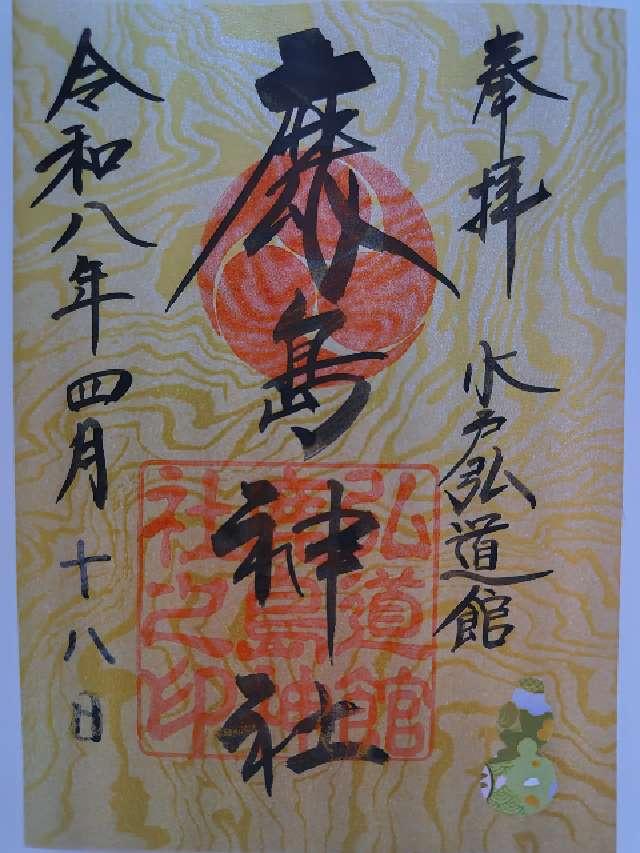 奉拝
水戸弘道館
鹿島神社
弘道館
鹿島神
社之印
令和八年四月十八日